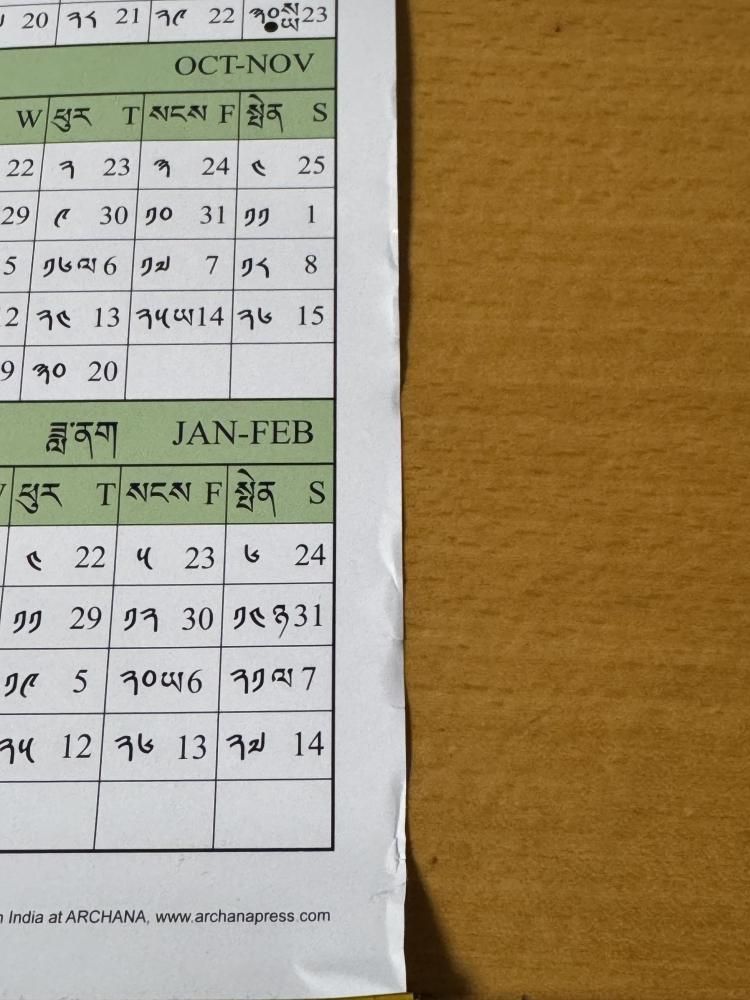 20 ༢༨ 21 ༢༩ 22 ༣༠ 23
OCT-NOV
W ཕུར T སངས F སྤེན S
22 ༢ 23 ༣ 24 ༤ 25
29 ༩ 30 ༡༠ 31 ༡༡ 1
5 ༡༦ལ 6 ༡༧ 7 ༡༨ 8
2 ༢༤ 13 ༢༥ཡ 14 ༢༦ 15
9 ༣༠ 20
JAN-FEB
ཕུར T སངས F སྤེན S
༤ 22 ༥ 23 ༦ 24
༡༡ 29 ༡༢ 30 ༡༤ ཉ 31
༡༩ 5 ༢༠ཡ 6 ༢༡ལ 7
༢༥ 12 ༢༦ 13 ༢༧ 14
India at ARCHANA, www.archanapress.com